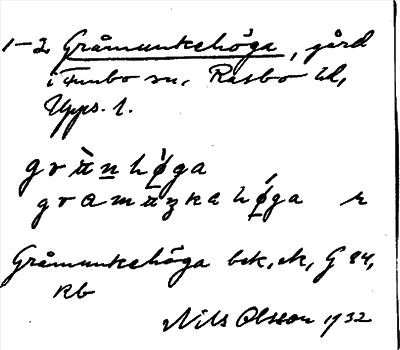 1-2 Gråmunkehöga, gård
i Funbo sn, Rasbo hd,
Upps. l.
grànhø̀ga
gramuzkahǿga r
Gråmunkehöga bek, ek, G 84,
Kb
Nils Olsson 1932